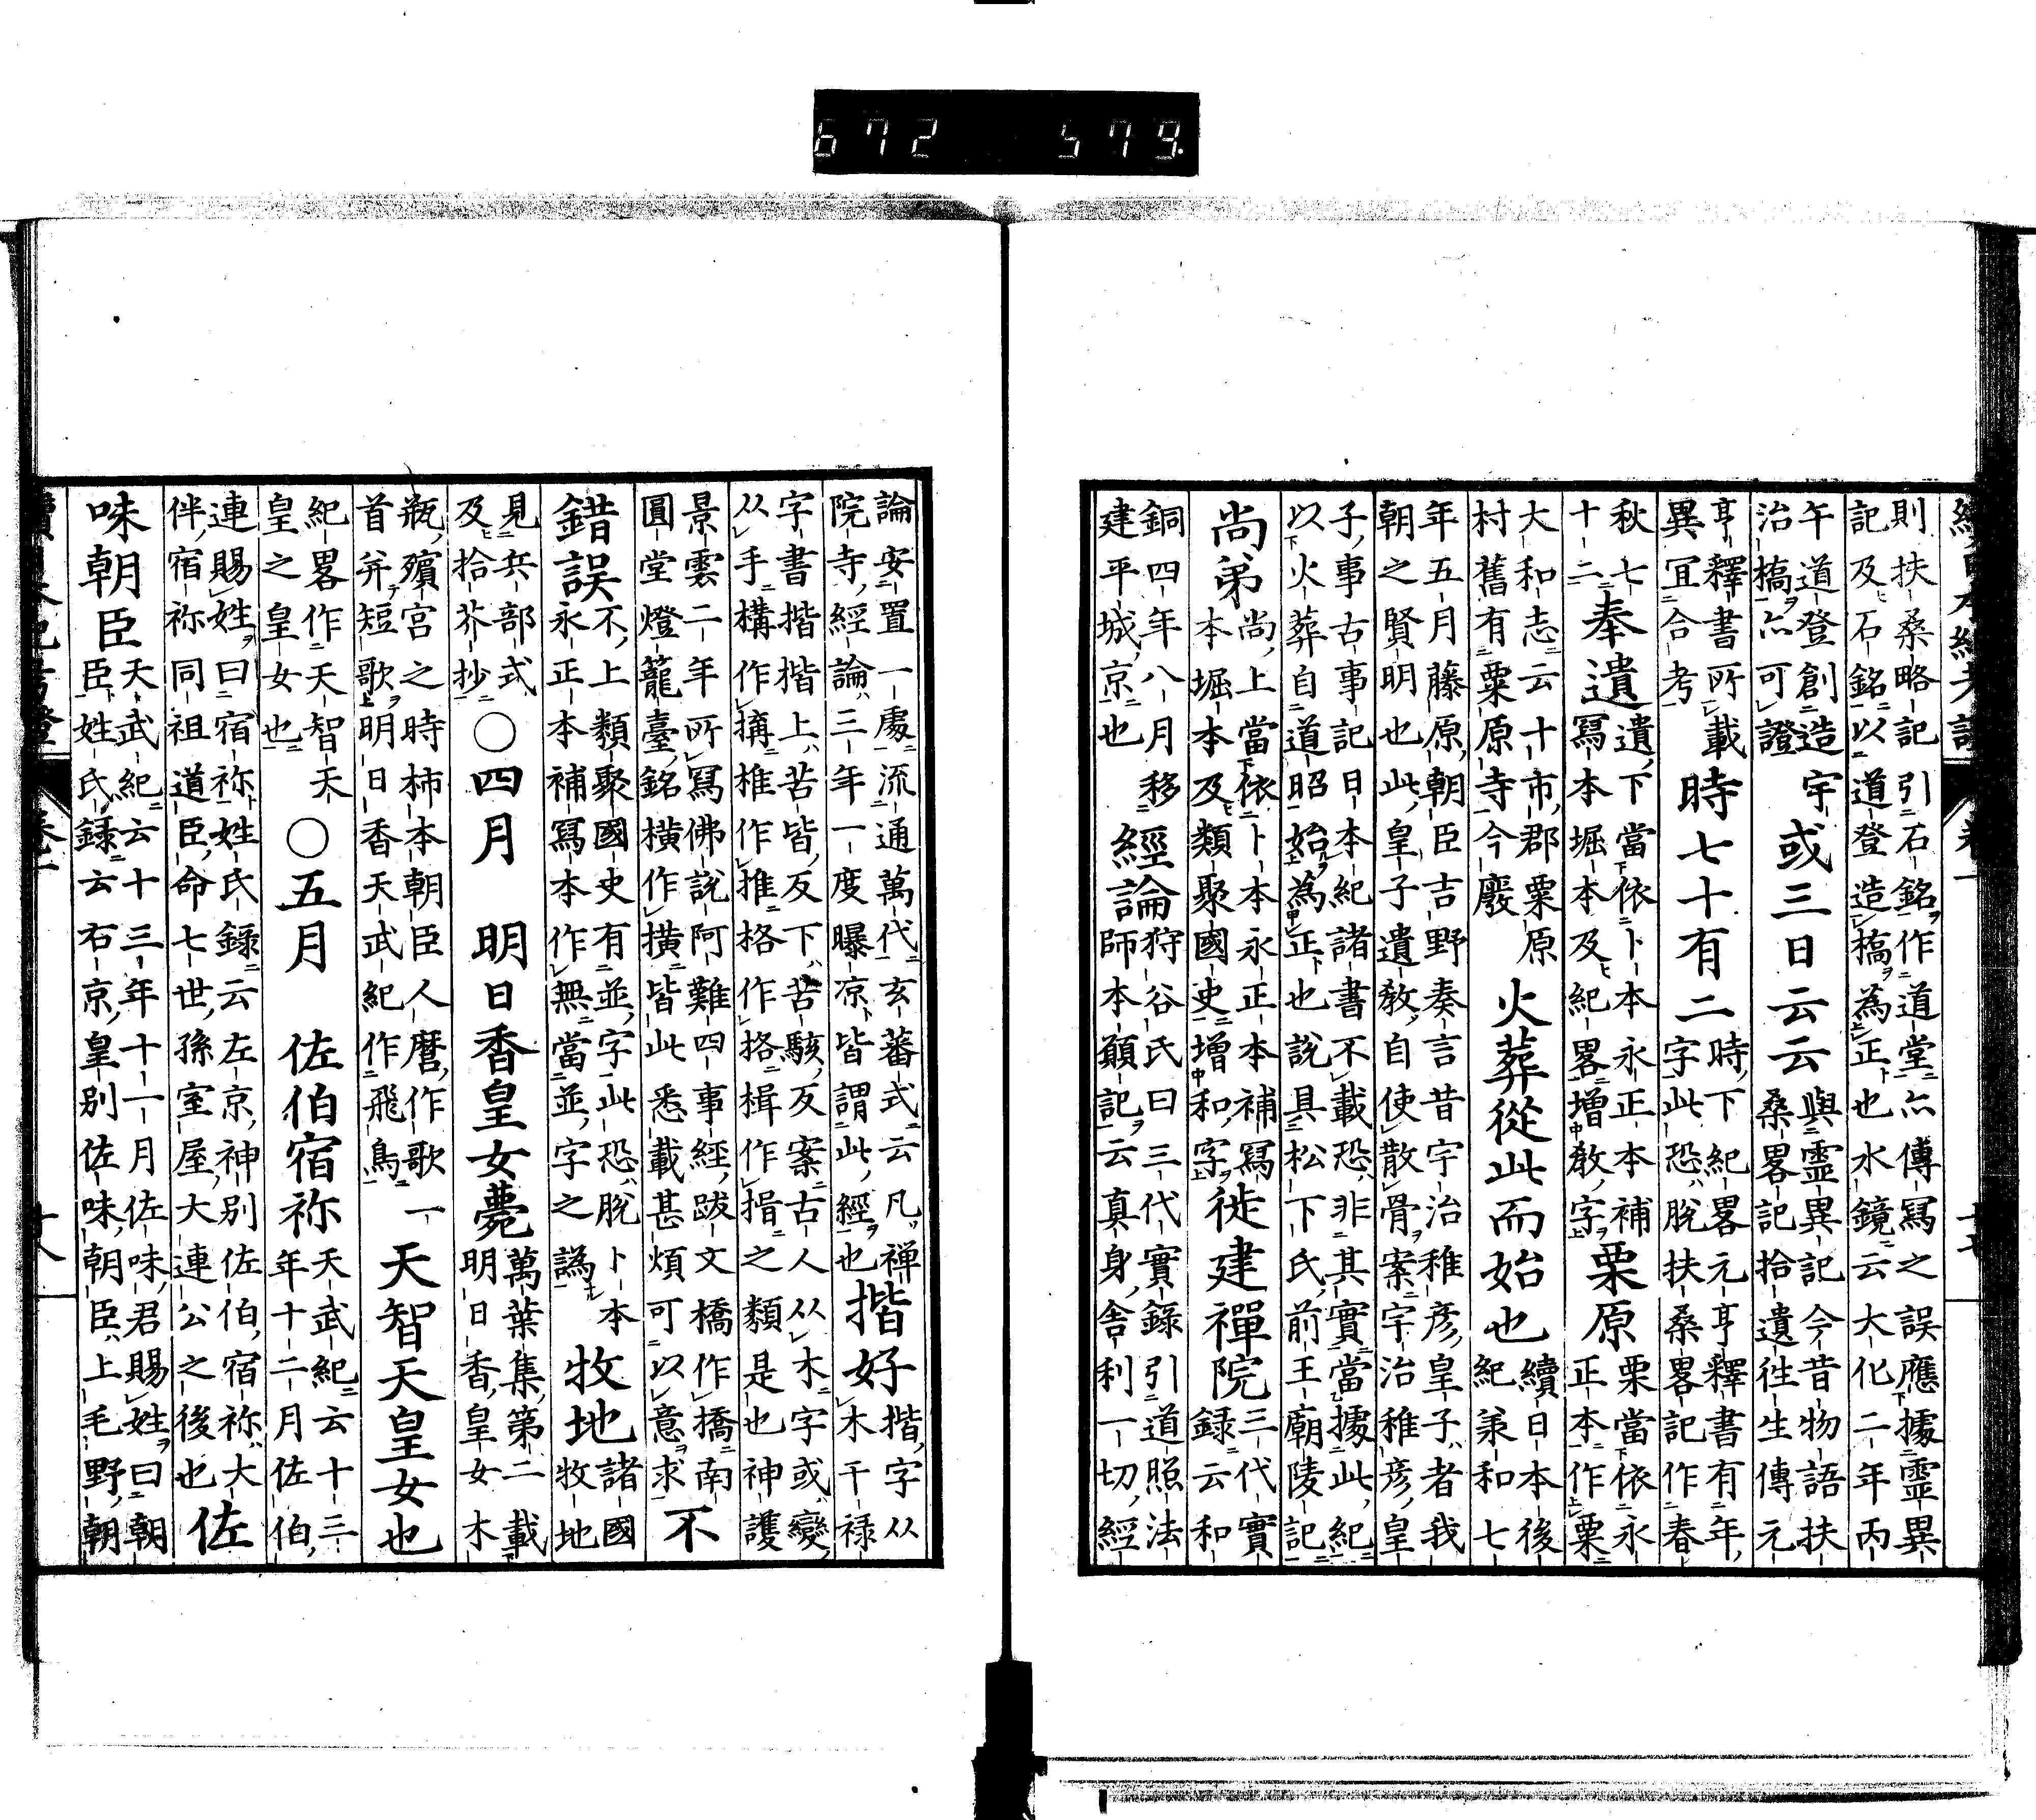 則扶桑略記引石銘作道堂亦傳寫之誤應據靈異
記及石銘以道登造橋為正也水鏡云大化二年丙
午道登創造宇
治橋亦可證
或三日云云
與靈異記今昔物語扶
桑畧記拾遺徃生傳元
亨釋書所載
異宜合考
時七十有二
時下紀畧元亨釋書有年
字此恐脫扶桑畧記作春
秋七
十二
奉遺
遺下當依卜本永正本補
寫本堀本及紀畧增教字
栗原
栗當依永
正本作粟
大和志云十市郡粟原
村舊有粟原寺今廢
火葬從此而始也
續日本後
紀羕和七
年五月藤原朝臣吉野奏言昔宇治稚彦皇子者我
朝之賢明也此皇子遺敎自使散骨案宇治稚彦皇
子事古事記日本紀諸書不載恐非其實當據此紀
以火葬自道昭始為正也說具松下氏前王廟陵記
尚弟
尚上當依卜本永正本補寫
本堀本及類聚國史增和字
徙建禪院
三代實
録云和
銅四年八月移
建平城京也
經論
狩谷氏曰三代實錄引道照法
師本願記云真身舍利一切經
論安置一處流通萬代玄蕃式云凡禅
院寺經論三年一度曝凉皆謂此經也
揩好
揩字从
木干禄
字書揩楷上苦皆反下苦駭反案古人从木字或變
从手構作搆椎作推格作挌楫作揖之類是也神護
景雲二年所寫佛說阿難四事經跋文橋作撟南
圓堂燈籠臺銘橫作擴皆此悉載甚煩可以意求
不
錯誤
不上類聚國史有並字此恐脫卜本
永正本補寫本作無當並字之譌
牧地
諸國
牧地
見兵部式
及拾芥抄
○四月
明日香皇女薨
萬葉集第二載
明日香皇女木
瓶殯宮之時柿本朝臣人麿作歌一
首并短歌明日香天武紀作飛鳥
天智天皇女也
紀畧作天智天
皇之皇女也
○五月
佐伯宿祢
天武紀云十三
年十二月佐伯
連賜姓曰宿祢姓氏録云左京神别佐伯宿祢大
伴宿祢同祖道臣命七世孫室屋大連公之後也
佐
味朝臣
天武紀云十三年十一月佐味君賜姓曰朝
臣姓氏録云右京皇别佐味朝臣上毛野朝